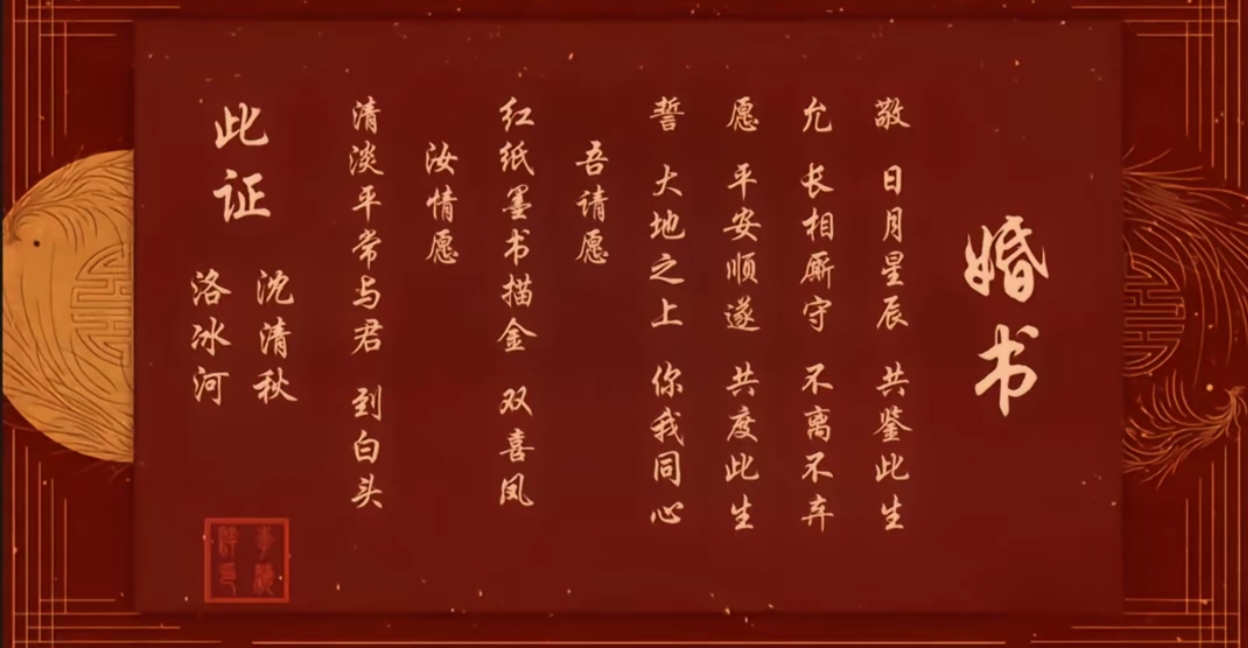 婚书
敬 日月星辰 共鉴此生
允 长相厮守 不离不弃
愿 平安顺遂 共度此生
誓 大地之上 你我同心
吾请愿
红纸墨书描金 双喜凤
汝情愿
清淡平常与君 到白头
此证
沈清秋
洛冰河